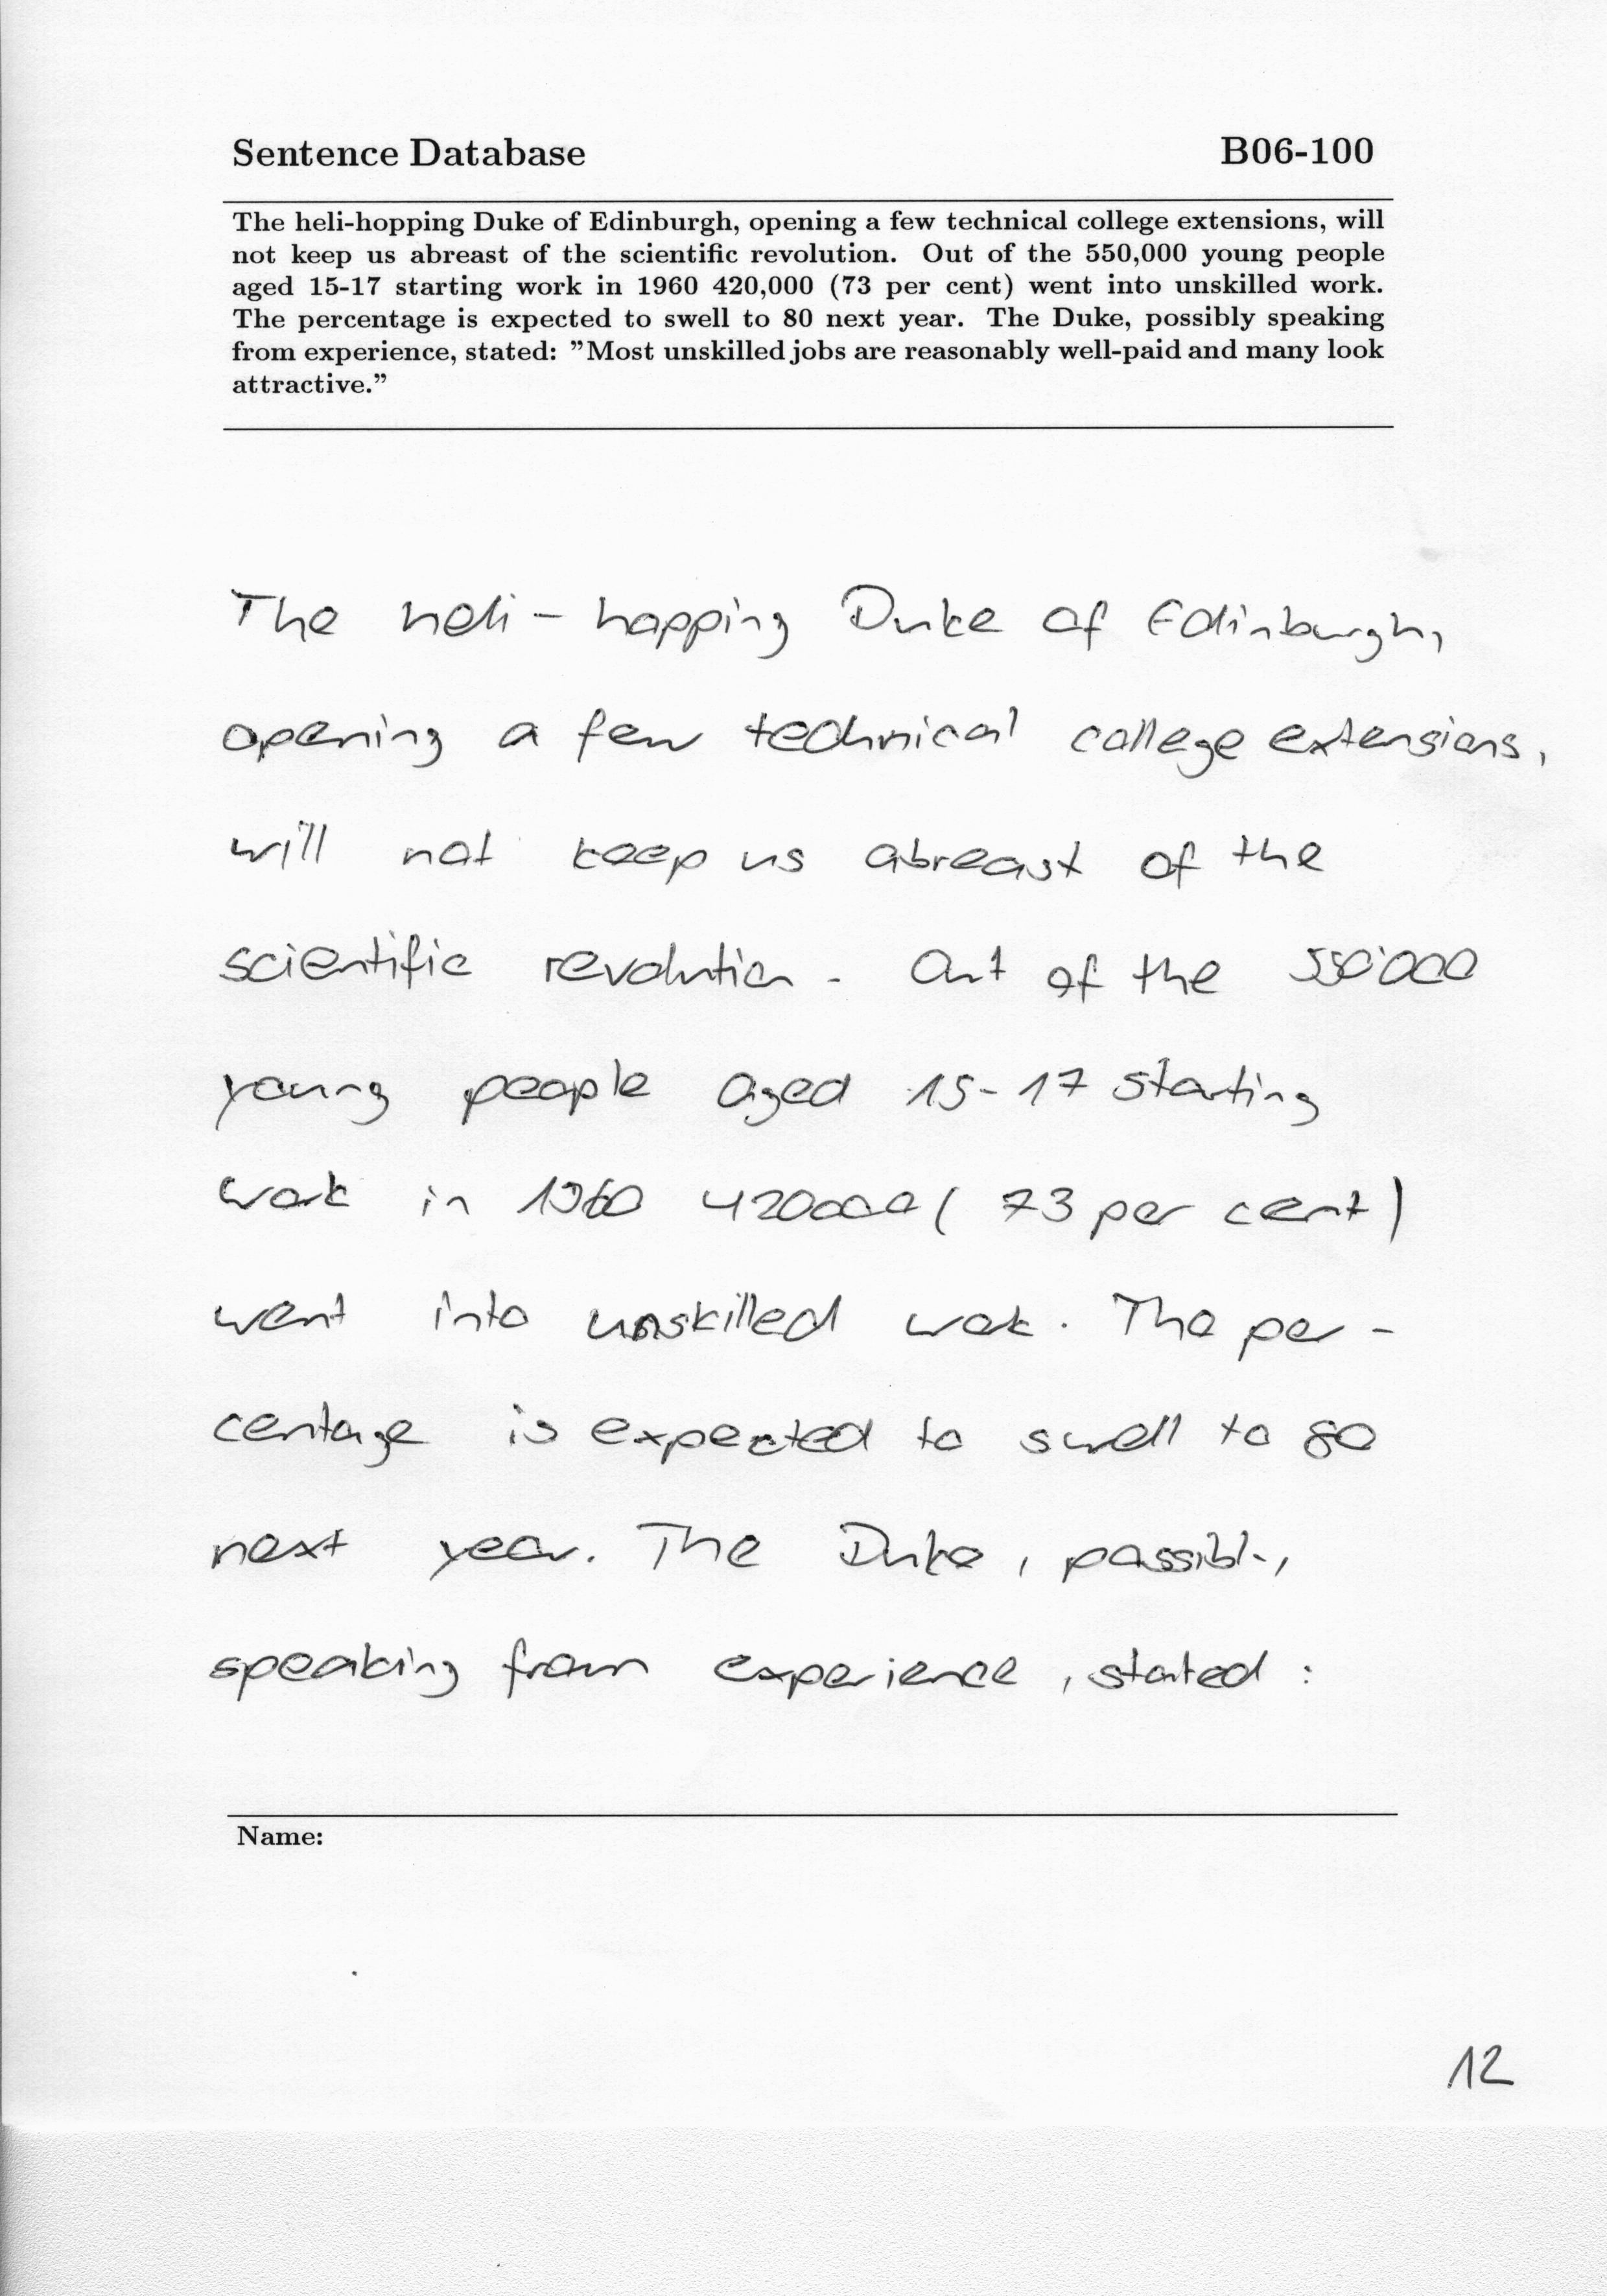 Sentence Database B06-100
The heli-hopping Duke of Edinburgh, opening a few technical college extensions, will
not keep us abreast of the scientific revolution. Out of the 550,000 young people
aged 15-17 starting work in 1960 420,000 (73 per cent) went into unskilled work.
The percentage is expected to swell to 80 next year. The Duke, possibly speaking
from experience, stated: ”Most unskilled jobs are reasonably well-paid and many look
attractive.”
The heli - hopping Duke of Edinburgh,
opening a few technical college extensions,
will not keep us abreast of the
scientific revolution. Out of the 550'000
young people aged 15-17 starting
work in 1960 420000 (73 per cent)
went into unskilled work. The per -
centage is expected to swell to 80
next year. The Duke, possibly,
speaking from experience, stated:
Name:
12